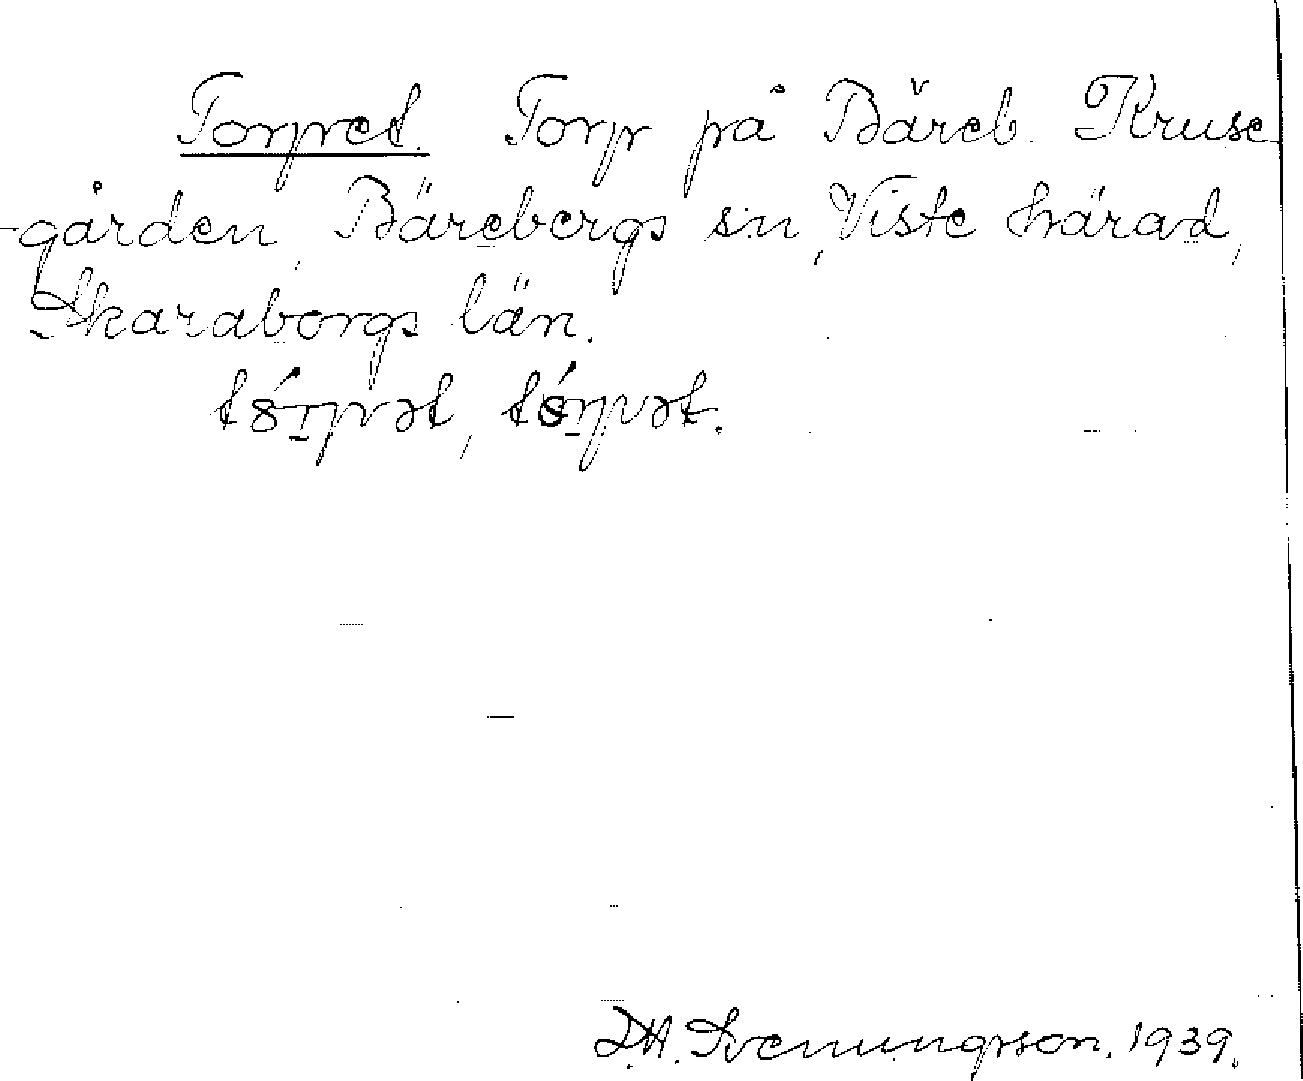 Torpet. Torp på Bäreb. Kruse
-gården, Bärebergs sn, Viste härad,
Skaraborgs län.
D.H. Svenungsson. 1939.